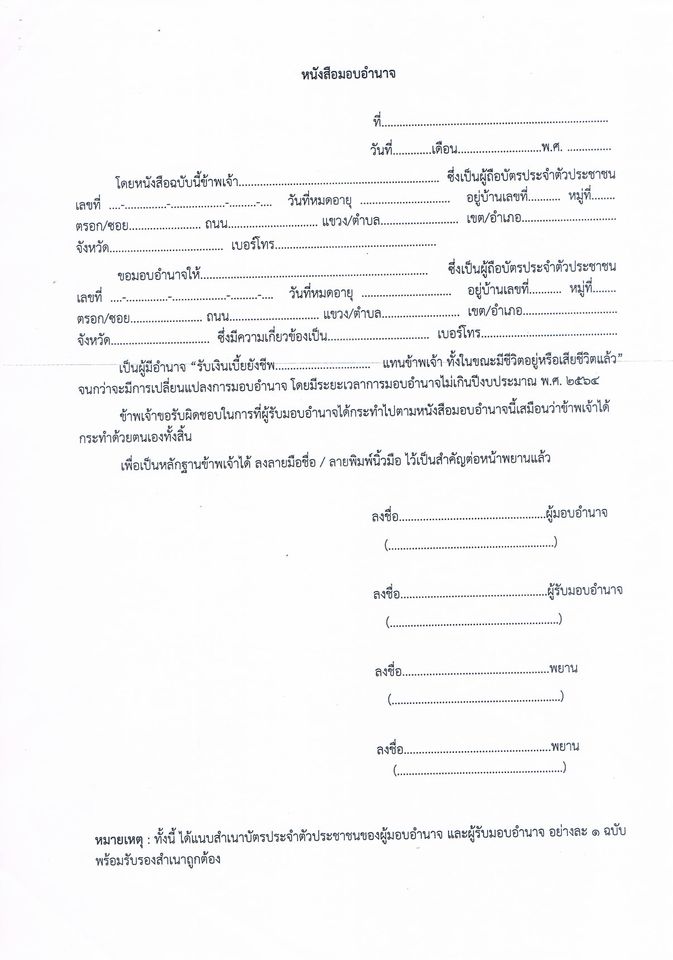 หนังสือมอบอำนาจ
ที่............................................................................
วันที่.............เดือน............................พ.ศ. ...............
โดยหนังสือฉบับนี้ข้าพเจ้า................................................................... ซึ่งเป็นผู้ถือบัตรประจำตัวประชาชน
เลขที่ ....-..............-..................-.........-.... วันที่หมดอายุ .............................. อยู่บ้านเลขที่........... หมู่ที่........
ตรอก/ซอย........................ ถนน.............................. แขวง/ตำบล.......................... เขต/อำเภอ...............................
จังหวัด...................................... เบอร์โทร......................................................
ขอมอบอำนาจให้............................................................................ ซึ่งเป็นผู้ถือบัตรประจำตัวประชาชน
เลขที่ ....-..............-..................-.........-.... วันที่หมดอายุ .............................. อยู่บ้านเลขที่........... หมู่ที่........
ตรอก/ซอย........................ ถนน.............................. แขวง/ตำบล.......................... เขต/อำเภอ...............................
จังหวัด................................. ซึ่งมีความเกี่ยวข้องเป็น.................................. เบอร์โทร..............................................
เป็นผู้มีอำนาจ “รับเงินเบี้ยยังชีพ................................ แทนข้าพเจ้า ทั้งในขณะมีชีวิตอยู่หรือเสียชีวิตแล้ว”
จนกว่าจะมีการเปลี่ยนแปลงการมอบอำนาจ โดยมีระยะเวลาการมอบอำนาจไม่เกินปีงบประมาณ พ.ศ. ๒๕๖๔
ข้าพเจ้าขอรับผิดชอบในการที่ผู้รับมอบอำนาจได้กระทำไปตามหนังสือมอบอำนาจนี้เสมือนว่าข้าพเจ้าได้
กระทำด้วยตนเองทั้งสิ้น
เพื่อเป็นหลักฐานข้าพเจ้าได้ ลงลายมือชื่อ / ลายพิมพ์นิ้วมือ ไว้เป็นสำคัญต่อหน้าพยานแล้ว
ลงชื่อ.................................................ผู้มอบอำนาจ
(........................................................)
ลงชื่อ.................................................ผู้รับมอบอำนาจ
(........................................................)
ลงชื่อ.................................................พยาน
(........................................................)
ลงชื่อ.................................................พยาน
(........................................................)
หมายเหตุ : ทั้งนี้ ได้แนบสำเนาบัตรประจำตัวประชาชนของผู้มอบอำนาจ และผู้รับมอบอำนาจ อย่างละ ๑ ฉบับ
พร้อมรับรองสำเนาถูกต้อง